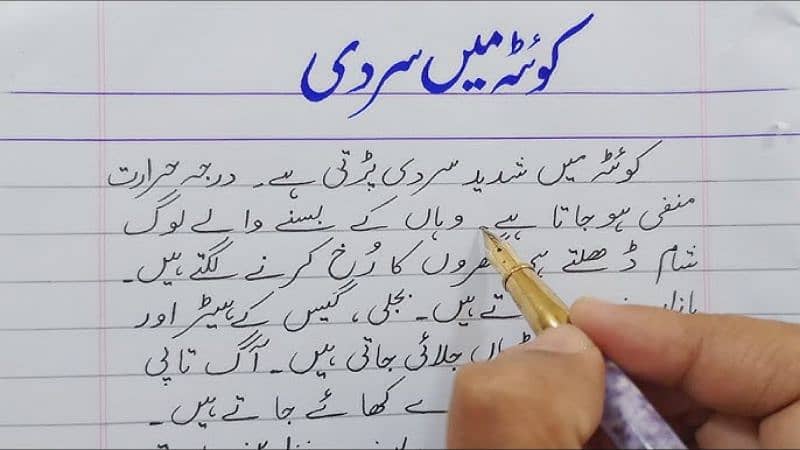 کوئٹہ میں سردی
کوئٹہ میں شدید سردی پڑتی ہے۔ درجہ حرارت
منفی ہو جاتا ہے۔ وہاں کے بسنے والے لوگ
شام ڈھلتے ہی گھروں کا رُخ کرنے لگتے ہیں۔
ہیں۔ بجلی، گیس کے ہیٹر اور
جلائی جاتی ہیں۔ آگ تاپی
کھائے جاتے ہیں۔